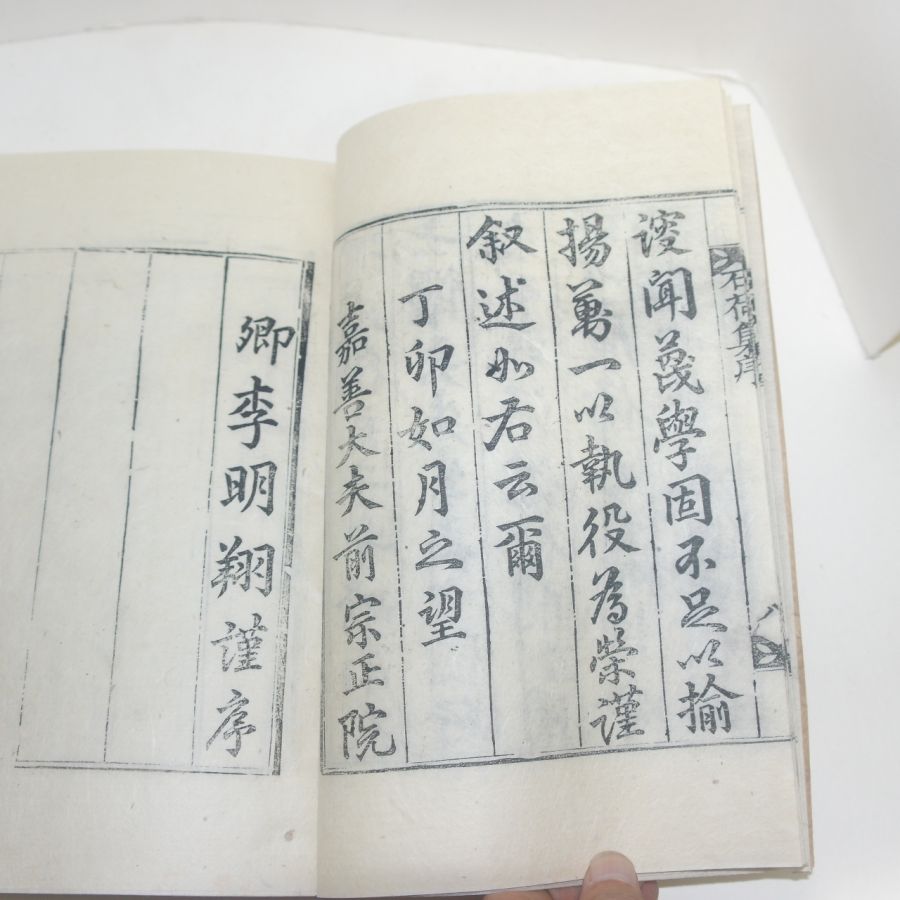 集序
八
謏聞蔑學固不足以揄
揚萬一以執役為榮謹
叙述如右云爾
丁卯如月之望
嘉善大夫前宗正院
卿李明翔謹序